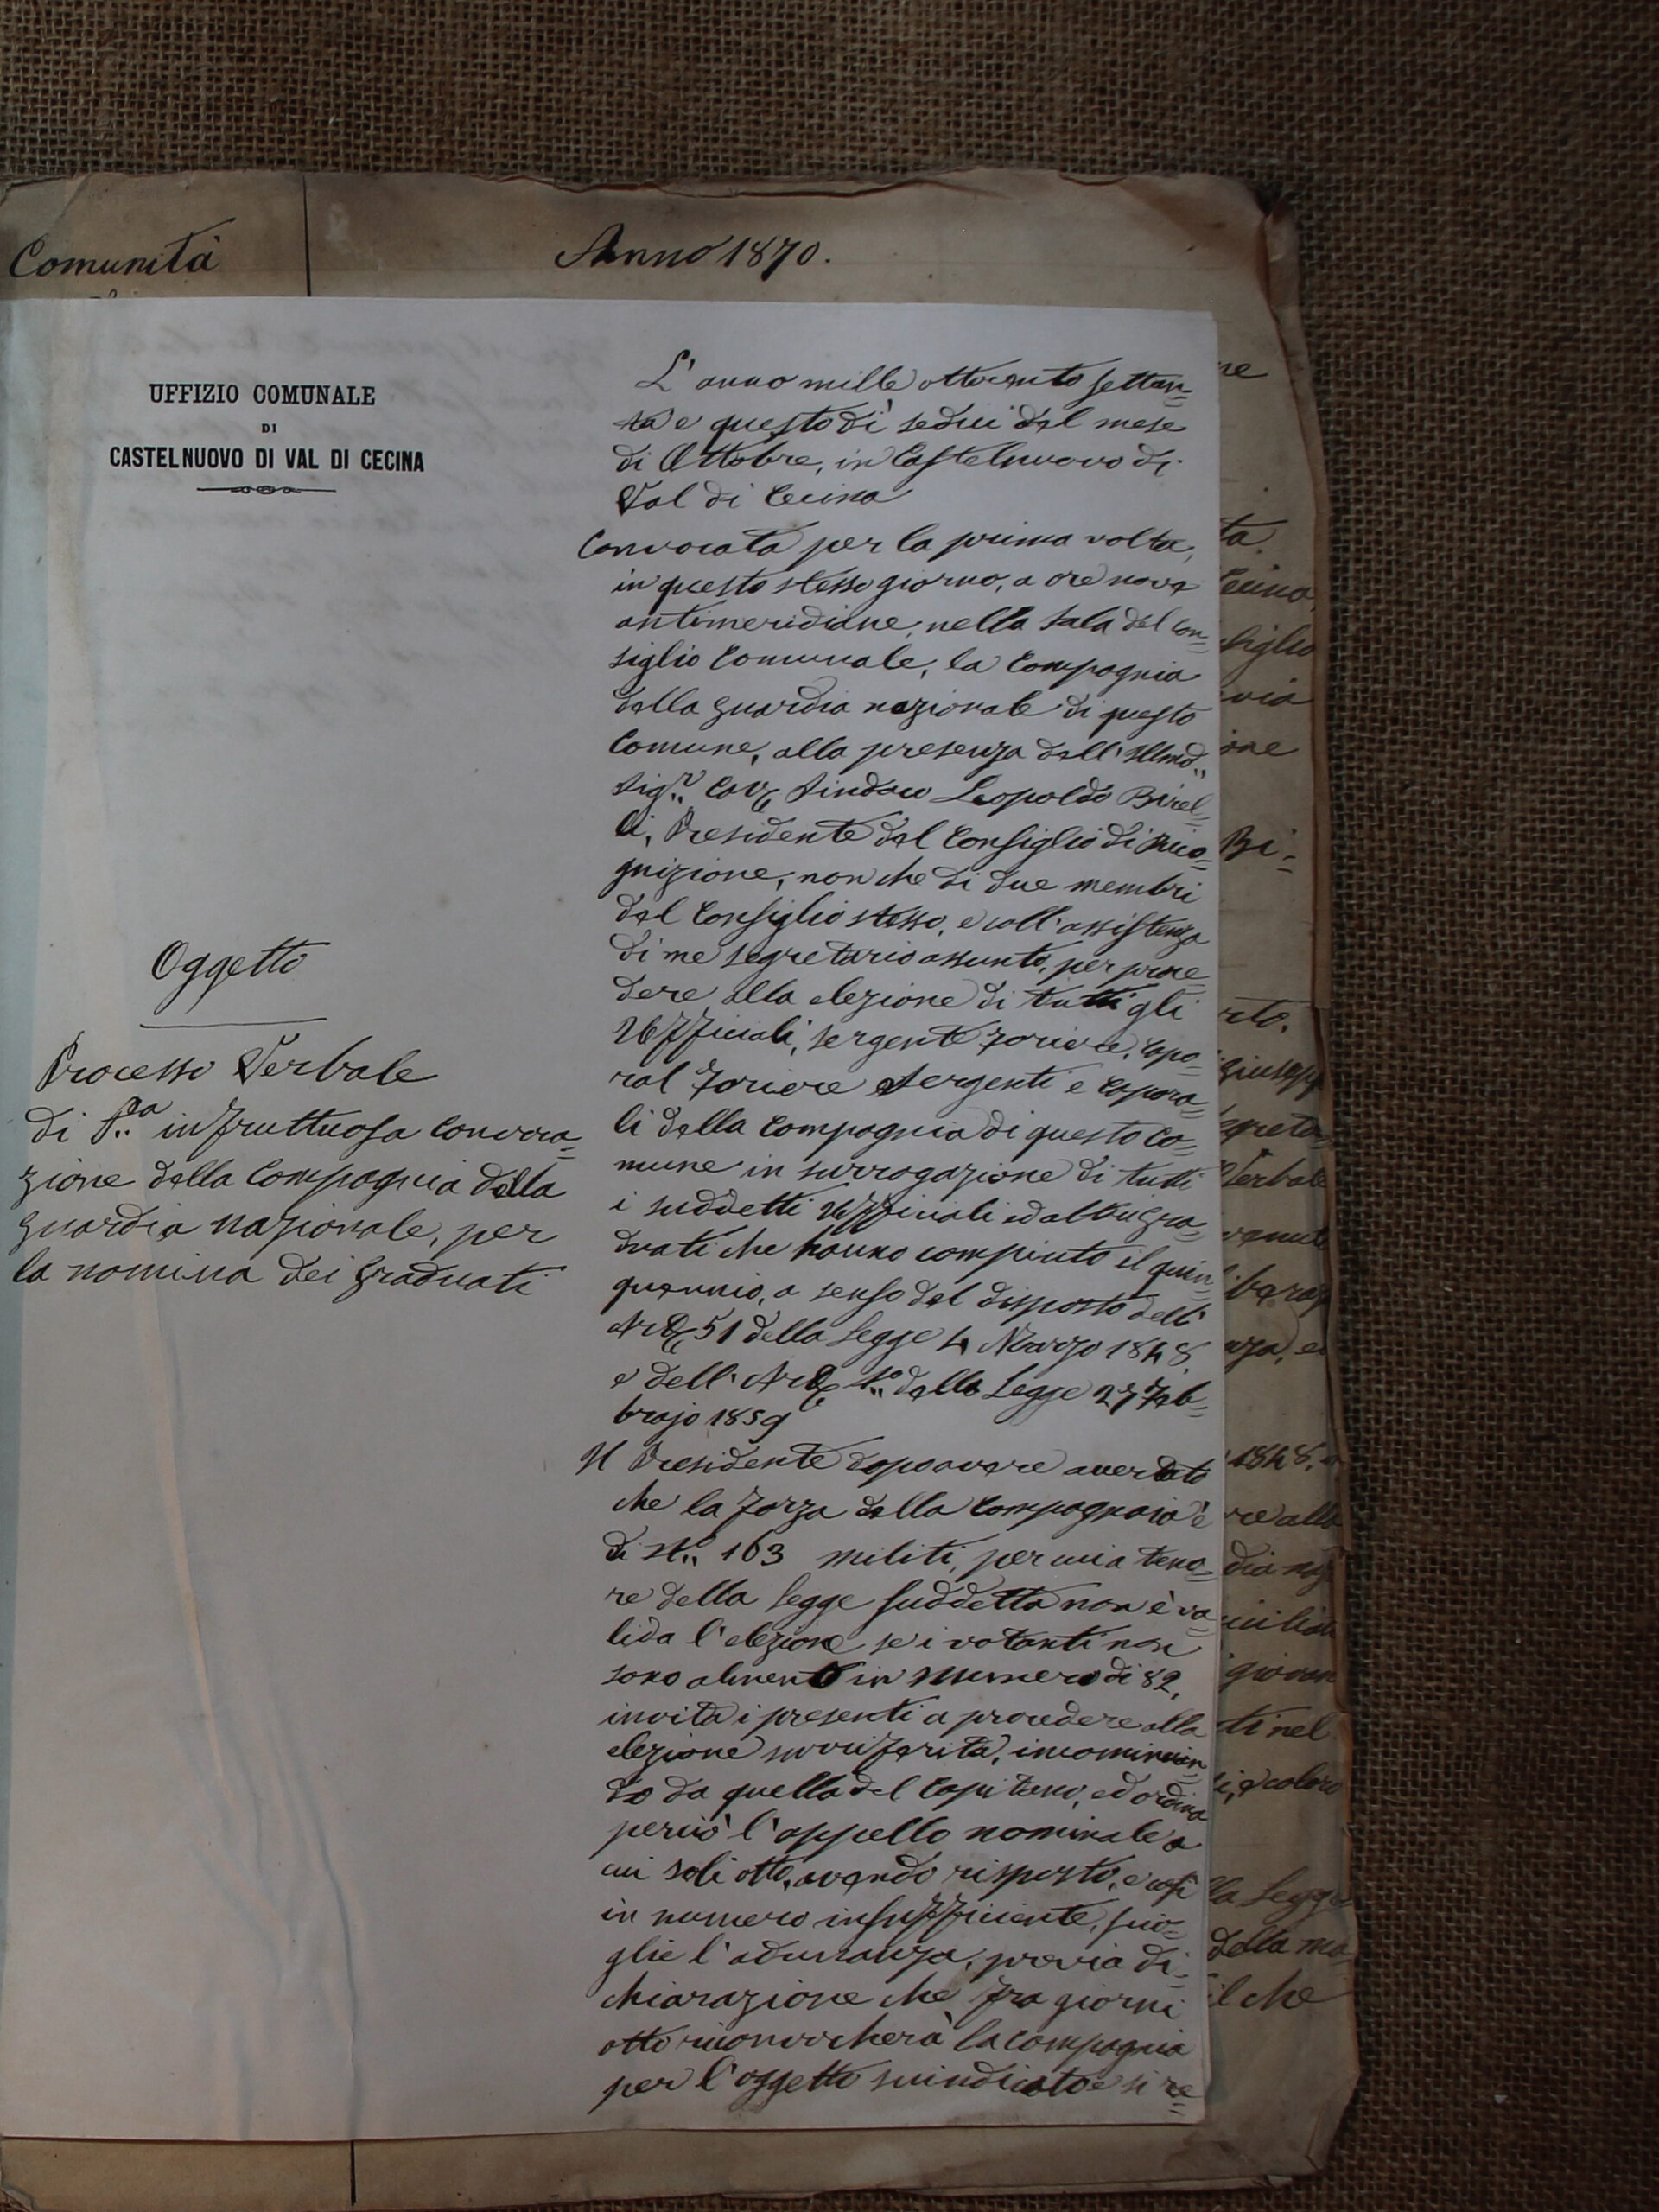 Comunità
Anno 1870.
UFFIZIO COMUNALE
DI
CASTELNUOVO DI VAL DI CECINA
Oggetto
Processo Verbale
di P.a infruttuosa convoca=
zione della Compagnia della
Guardia Nazionale, per
la nomina dei Graduati
L'anno mille ottocento settan=
ta e questo dì sedici del mese
di Ottobre, in Castelnuovo di
Val di Cecina
Convocata per la prima volta,
in questo stesso giorno, a ore nove
antimeridiane, nella sala del Con=
siglio Comunale, la Compagnia
della Guardia nazionale di questo
Comune, alla presenza dell'Illmo
Sig.r Cav. Sindaco Leopoldo Birel=
li, Presidente del Consiglio di Rico=
gnizione, non che di due membri
del Consiglio stesso, e coll'assistenza
di me segretario assunto, per proce
dere alla elezione di tutti gli
Ufficiali, Sergente Foriere, Capo=
ral Foriere Sergenti e Capora=
li della Compagnia di questo Co=
mune in surrogazione di tutti
i suddetti Ufficiali ed altri Gra=
duati che hanno compiuto il quin=
quennio, a senso del disposto dell'
Art. 51 della Legge 4 Marzo 1848,
e dell'Art. 1.o della Legge 27 Feb=
brajo 1859
Il Presidente dopo avere avvertito
che la forza della Compagnia è
di N.o 163 militi, per cui a teno=
re della Legge suddetta non è va=
lida l'elezione se i votanti non
sono almeno in numero di 82,
invita i presenti a procedere alla
elezione surriferita, incomincian=
do da quella del Capitano, ed ordina
perciò l'appello nominale a
cui soli otto, avendo risposto, e così
in numero insufficiente, scio=
glie l'adunanza, previa di=
chiarazione che fra giorni
otto riconvocherà la compagnia
per l'oggetto suindicato e si re=
ne
ta.
Cecina
siglio
via
one
Bi=
rto.
Giusep
egreta
Verbale
venute
berag
nza, e
1848, e
re alla
dia na
giovan
ti nel
i, e coloro
la Legge
della ma
il che